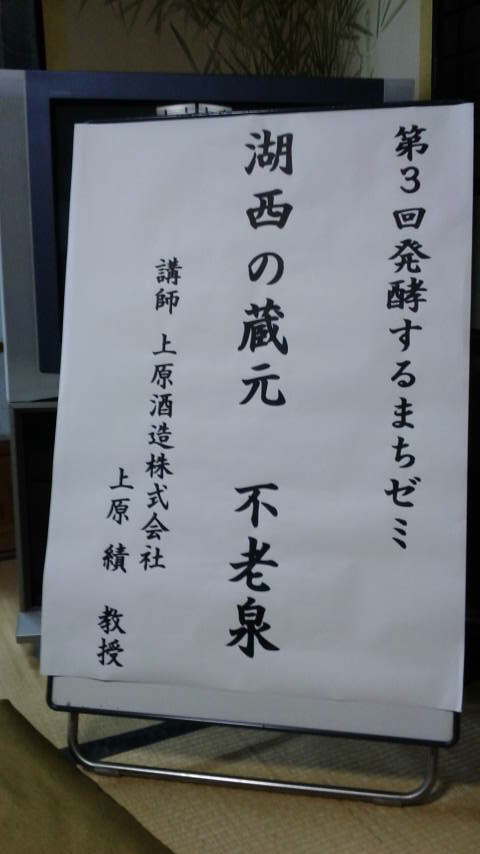 第３回発酵するまちゼミ
湖西の蔵元　不老泉
講師　上原酒造株式会社
上原　績　教授